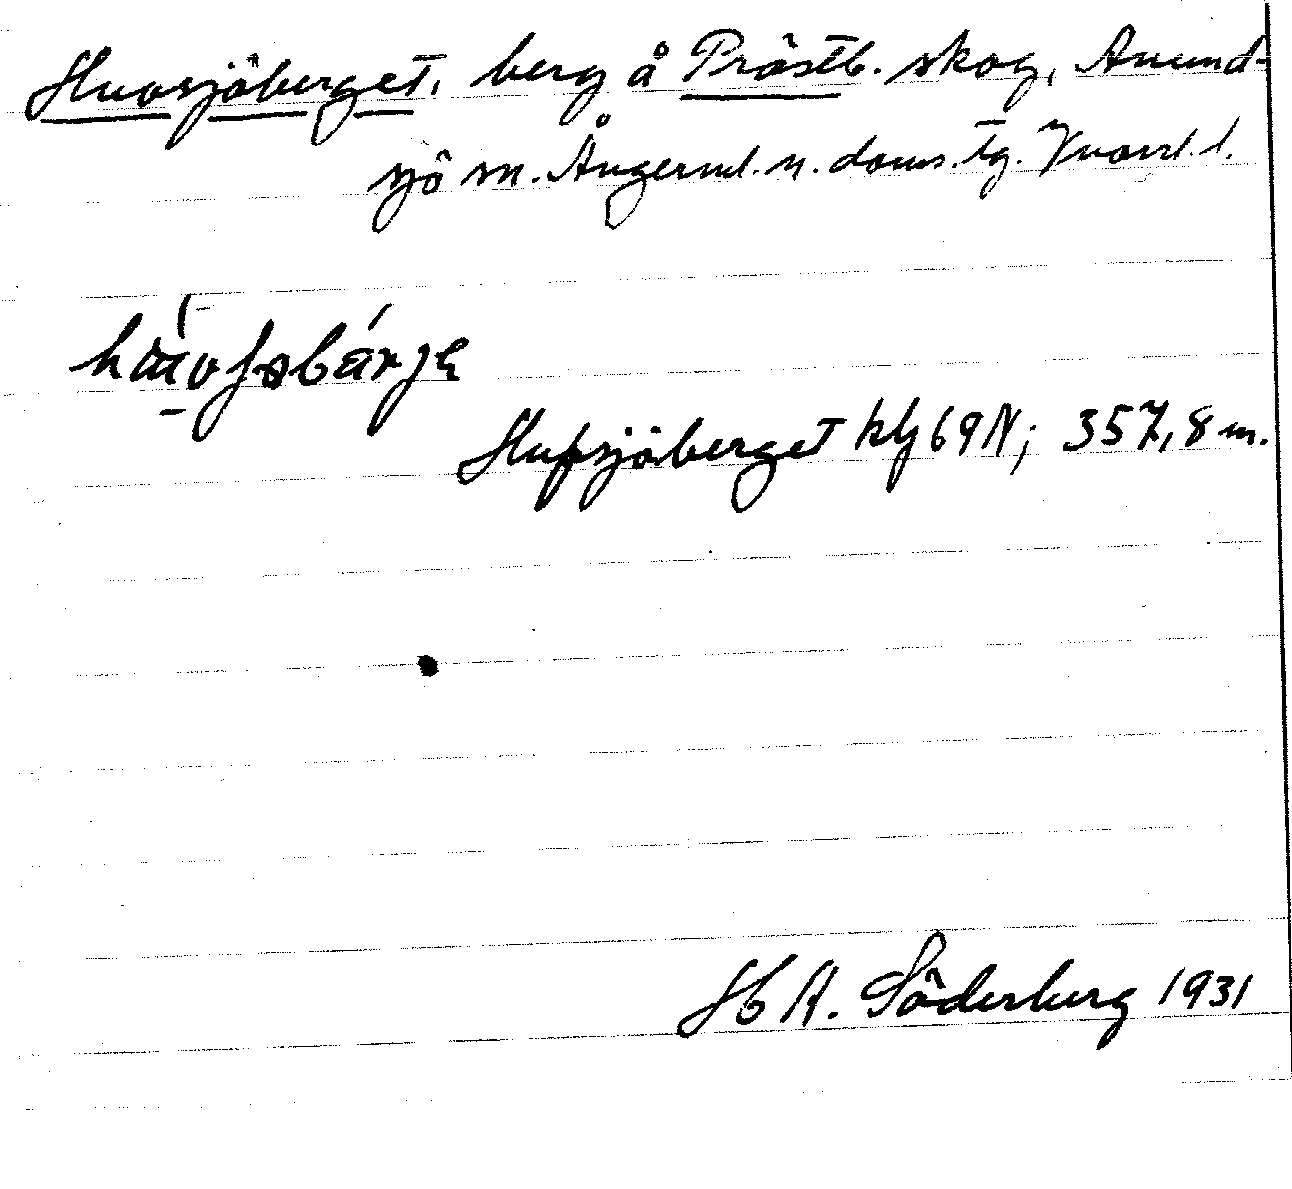 Huvsjöberget, berg å Prästb. skog, Anund-
sjö sn. Ångerml. n. doms. tg. Vnorrl. l.
Hufsjöberget kbl 69 N; 357,8 m.
H R. Söderberg 1931